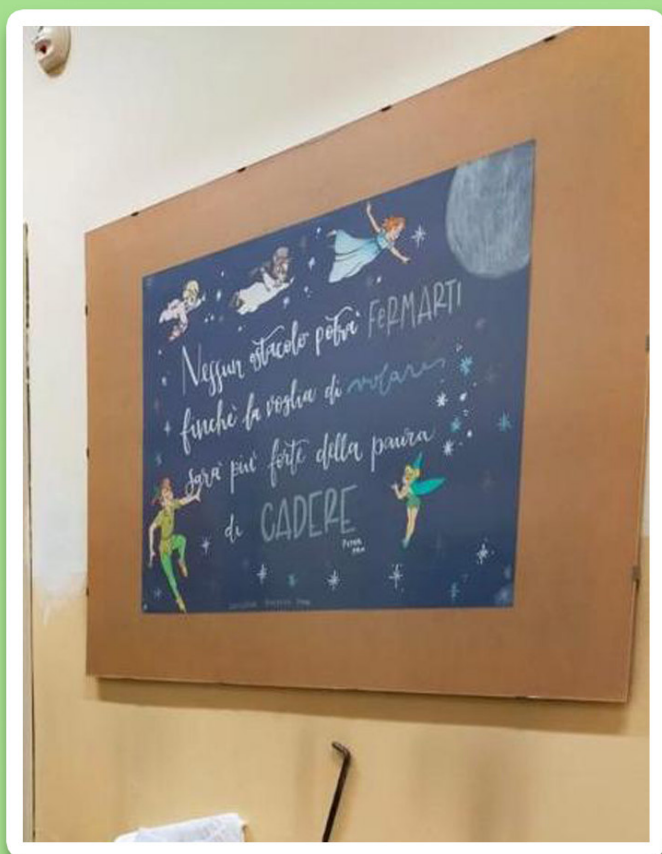 Nessun ostacolo potrà FERMARTI
finchè la voglia di volare
sarà più forte della paura
di CADERE
PETER
PAN